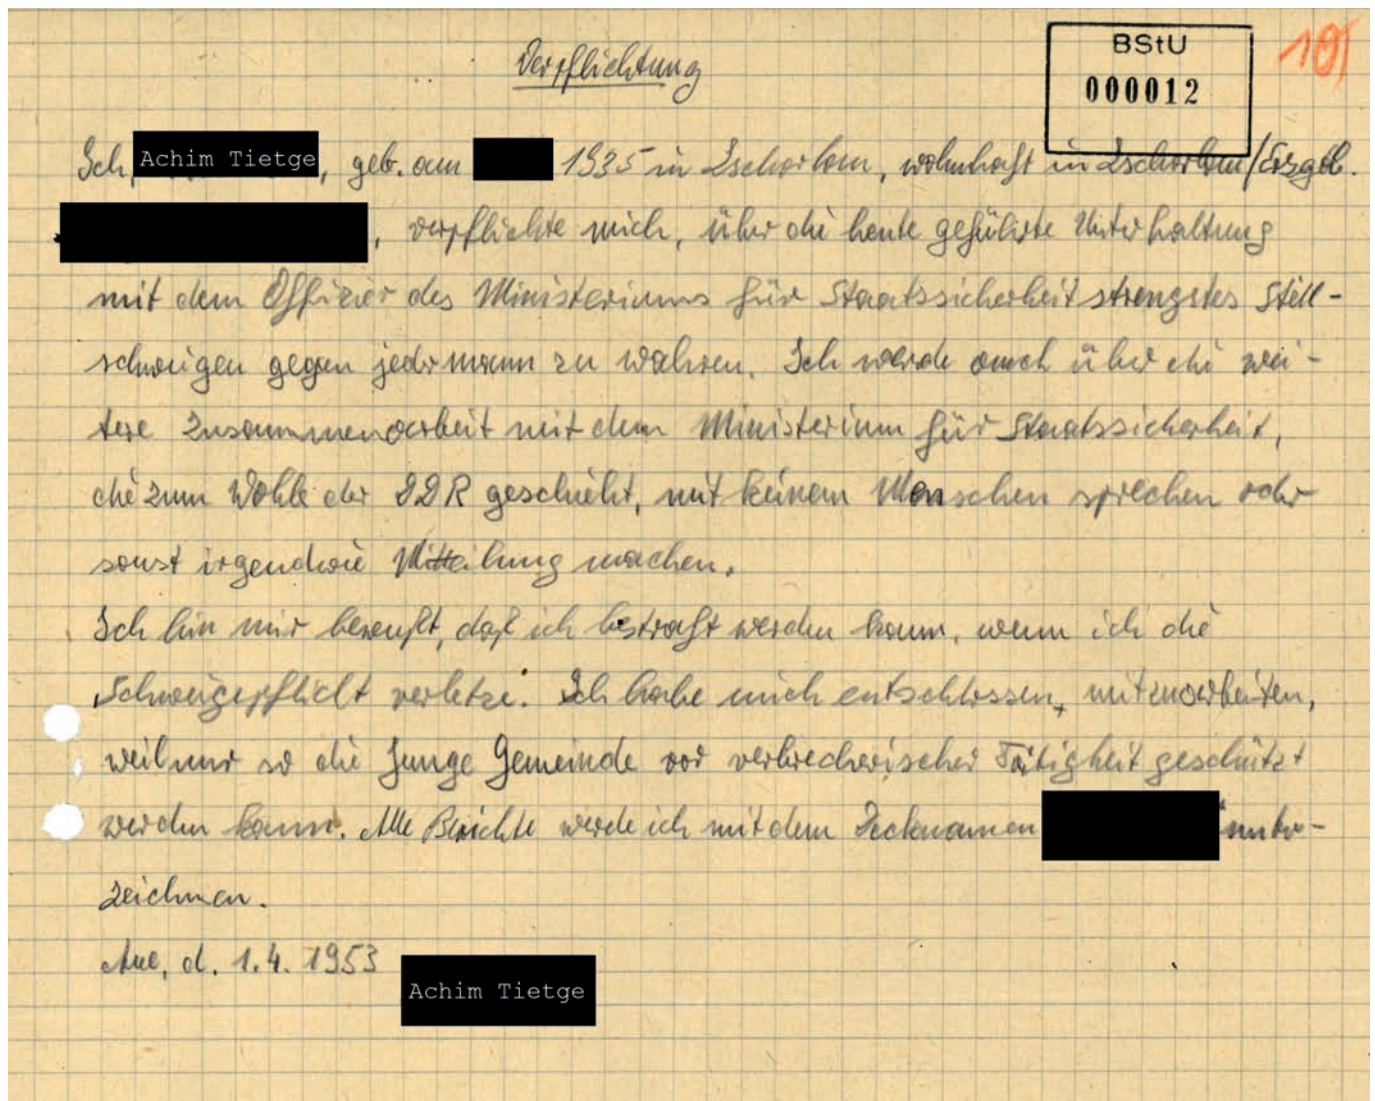 BStU
000012
101
Verpflichtung
Ich, Achim Tietge, geb. am 1935 in Zschorlau, wohnhaft in Zschorlau/Erzgeb.
, verpflichte mich, über die heute geführte Unterhaltung
mit dem Offizier des Ministeriums für Staatssicherheit strengstes Still-
schweigen gegen jedermann zu wahren. Ich werde auch über die wei-
tere Zusammenarbeit mit dem Ministerium für Staatssicherheit,
die zum Wohle der DDR geschieht, mit keinem Menschen sprechen oder
sonst irgendwie Mitteilung machen.
Ich bin mir bewußt, daß ich bestraft werden kann, wenn ich die
Schweigepflicht verletze. Ich habe mich entschlossen, mitzuarbeiten,
weil nur so die Junge Gemeinde vor verbrecherischer Tätigkeit geschützt
werden kann. Alle Berichte werde ich mit dem Decknamen unter-
zeichnen.
Aue, d. 1.4. 1953
Achim Tietge